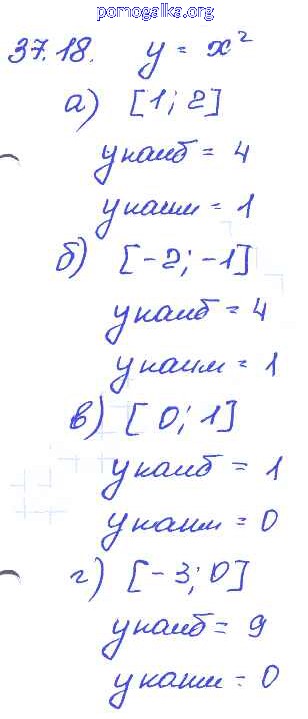 pomogalka.org
37.18. y = x²
а) [1; 2]
yнаиб = 4
yнаим = 1
б) [-2; -1]
yнаиб = 4
yнаим = 1
в) [0; 1]
yнаиб = 1
yнаим = 0
г) [-3; 0]
yнаиб = 9
yнаим = 0